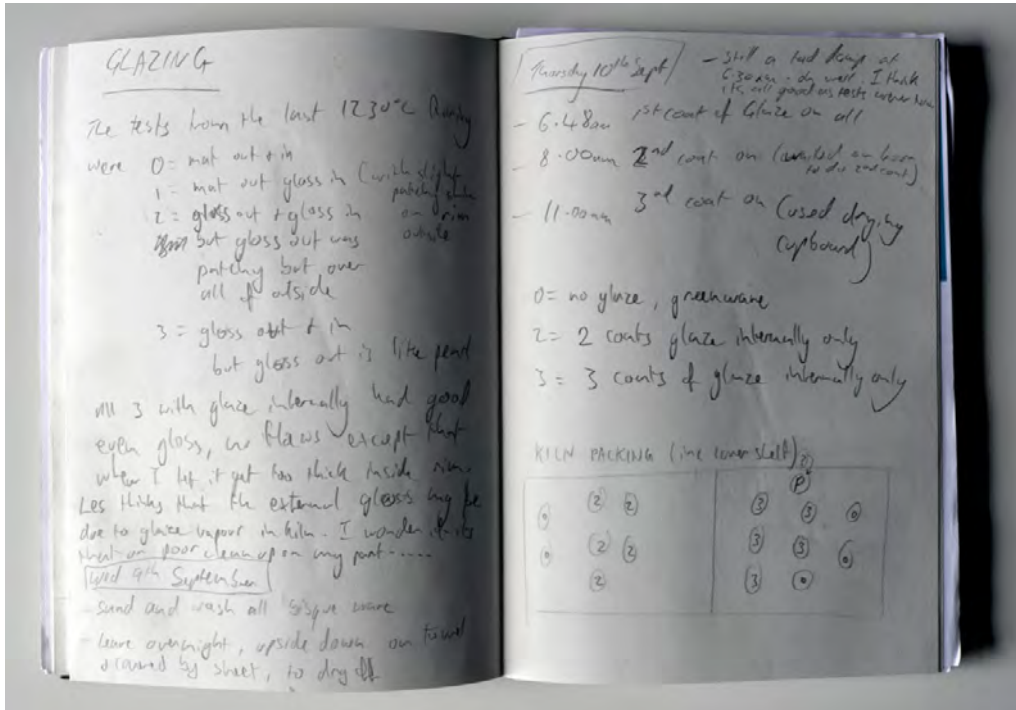 GLAZING
The tests from the last 1230°C firing
were 0 = mat out + in
1 = mat out gloss in (with slight
patchy
2 = gloss out + gloss in on rim
but gloss out was outside
patchy but over
all of outside
3 = gloss out + in
but gloss out is like pearl
all 3 with glaze internally had good
even gloss, no flaws except that
when I let it get too thick inside rim.
Les thinks that the external gloss may be
due to glaze vapour in kiln. I wonder if its
that or poor clean up on my part.....
Wed 9th September
- sand and wash all bisque ware
- leave overnight, upside down on towel
covered by sheet, to dry off
Thursday 10th Sept
- Still a tad damp at
6.30am - oh well. I think
its all good as tests were
- 6.48am 1st coat of Glaze on all
- 8.00am 2nd coat on (waited an hour
to do 2nd coat)
- 11.00am 3rd coat on (used drying
cupboard)
0 = no glaze, greenware
2 = 2 coats glaze internally only
3 = 3 coats of glaze internally only
KILN PACKING (inc lower shelf)
2 2
0
2 2
0
2
P
3 3 0
3 3 0
3 0